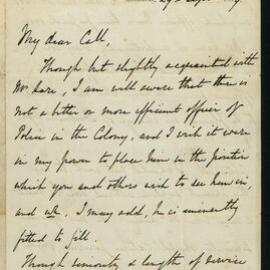 My dear Call,
Though but slightly acquainted with
Mr. Hare, I am well aware that there is
not a better or more efficient officer of
Police in the Colony, and I wish it were
in my power to place him in the position
which you and others wish to see him in,
and wh. I may add, he is eminently
fitted to fill.
Though seniority & length of service